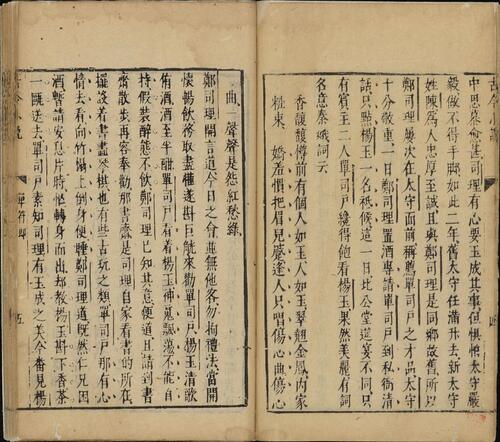 中思慕愈甚司理有心要玉成其事但懼怕太守嚴
毅做不得手脚如此二年舊太守任滿陞去新太守
姓陳爲人忠厚至誠且與鄭司理是同鄉故舊所以
鄭司理屢次在太守面前稱薦單司戶之才品太守
十分敬重一日鄭司理置酒專請單司戶到私衙清
話只點楊玉一名祗候這一日比公堂筵宴不同只
有賓主二人單司戶纔得飽看楊玉果然美麗有詞
名憶秦娥詞云
香馥馥樽前有個人如玉人如玉翠翹金鳳内家
糚束 嬌羞慣把眉兒蹙逢人只唱傷心曲傷心
曲一聲聲是怨紅愁綠
鄭司理開言道今日之會並無他客勿拘禮法當開
懷暢飲務取盡懽遂斟巨觥來勸單司戶楊玉清歌
侑酒酒至半酣單司戶看着楊玉神魂飄蕩不能自
持假裝醉態不飲鄭司理已知其意便道且請到書
齋散步再容奉勸那書齋是司理自家看書的所在
擺設着書畫琴棋也有些古玩之類單司戶那有心
情去看向竹榻上倒身便睡鄭司理道既然仁兄困
酒暫請安息片時忙轉身而出却教楊玉斟下香茶
一甌送去單司戶素知司理有玉成之美今番見楊